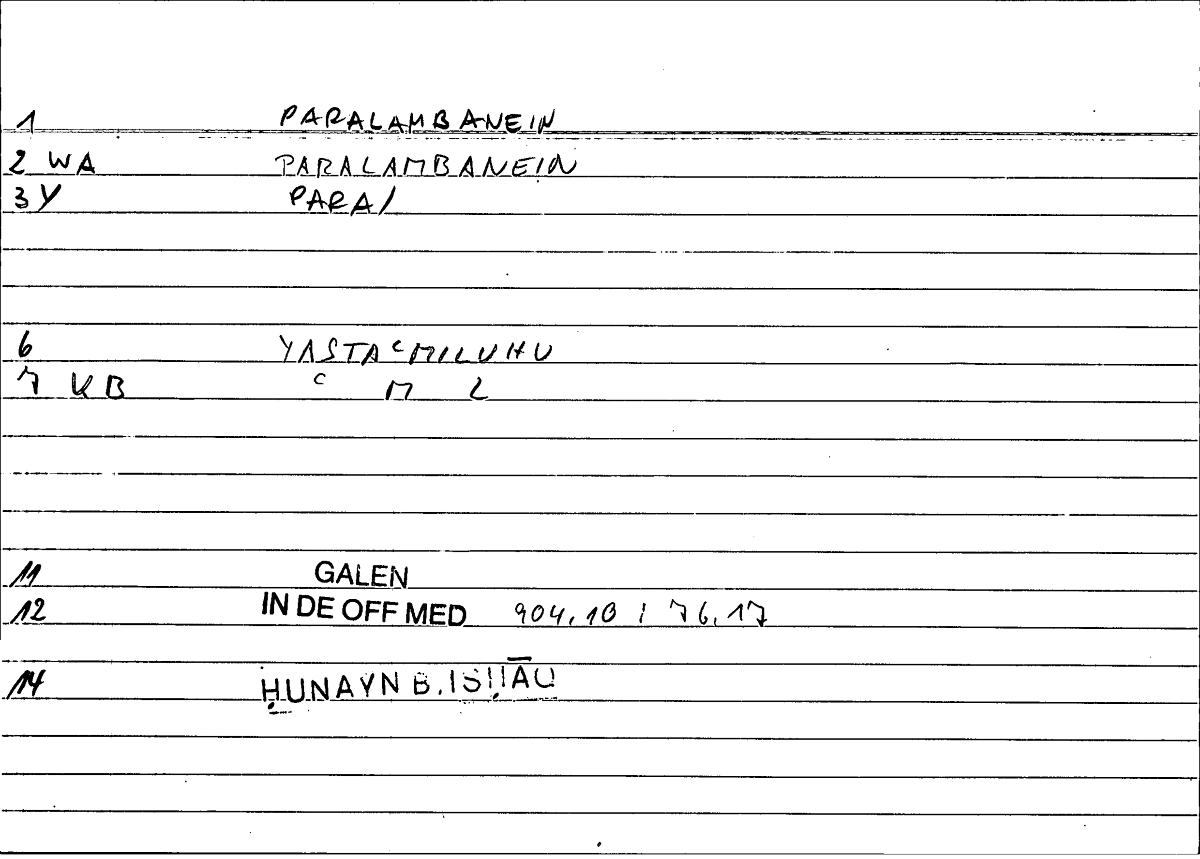 1 PARALAMBANEIN
2 WA PARALAMBANEIN
3 Y PARA/
6 YASTAʿMILUHU
7 KB ʿ M L
11 GALEN
12 IN DE OFF MED 904,10 / 76,17
14 ḤUNAYN B. ISḤĀQ